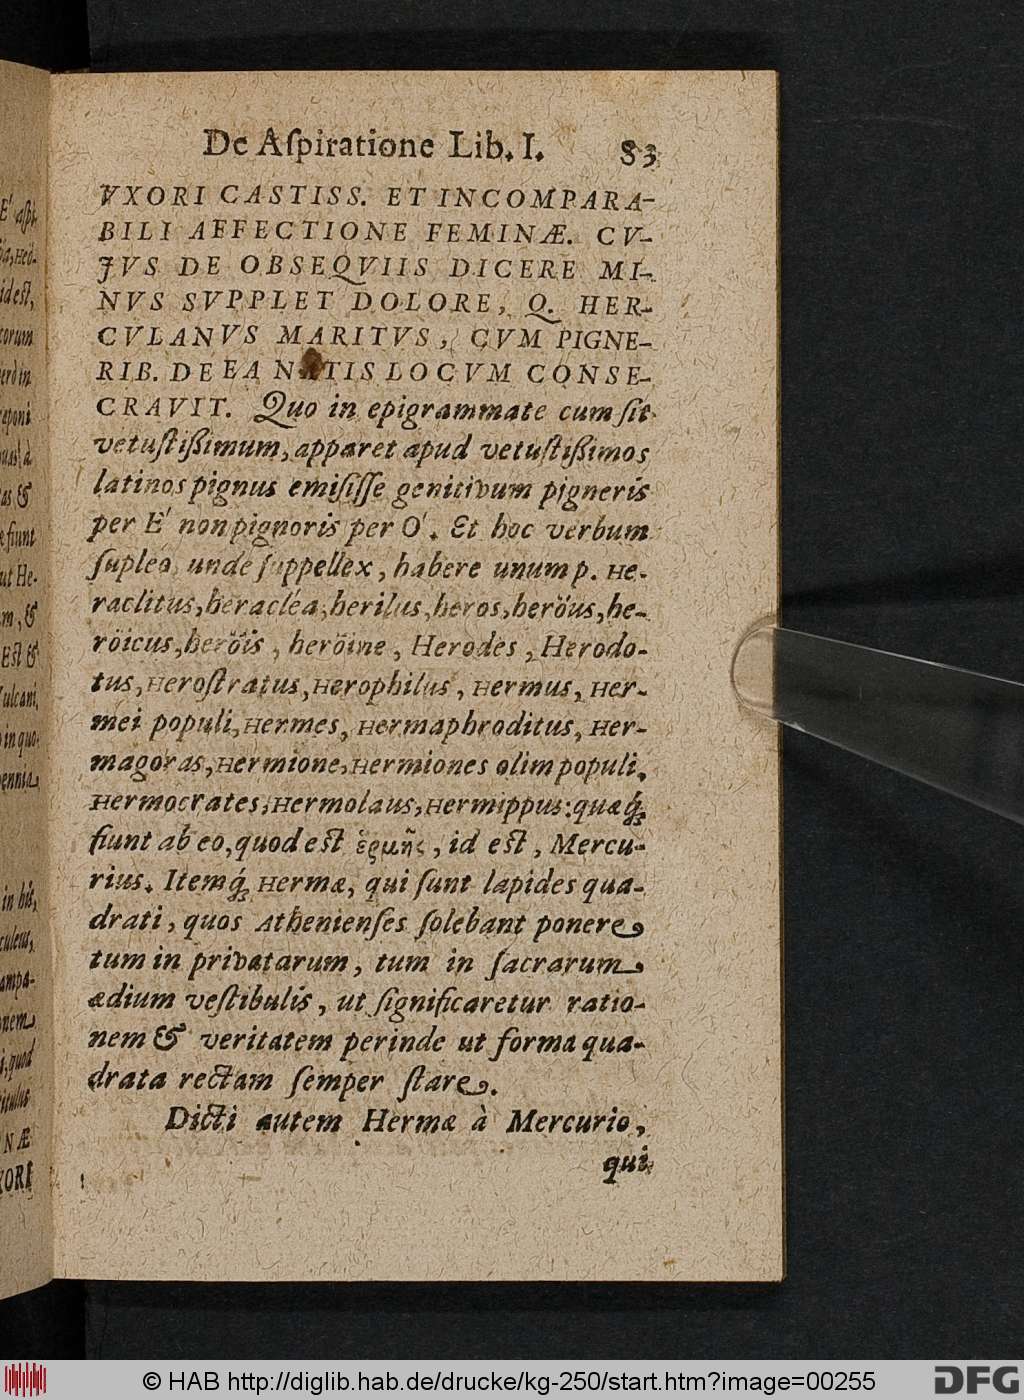 De Aſpiratione Lib. I. 83
VXORI CASTISS. ET INCOMPARA-
BILI AFFECTIONE FEMINÆ. CV-
JVS DE OBSEQVIIS DICERE MI-
NVS SVPPLET DOLORE, Q. HER-
CVLANVS MARITVS, CVM PIGNE-
RIB. DE EA NATIS LOCVM CONSE-
CRAVIT. Quo in epigrammate cum ſit
vetuſtißimum, apparet apud vetuſtißimos
latinos pignus emiſiſſe genitivum pigneris
per E' non pignoris per O'. Et hoc verbum
ſupleo unde ſuppellex, habere unum p. He-
raclitus, heracléa, herilus, heros, heröus, he-
röicus, heröis, heröine, Herodes, Herodo-
tus, Heroſtratus, Herophilus, Hermus, Her-
mei populi, Hermes, Hermaphroditus, Her-
magoras, Hermione, Hermiones olim populi,
Hermocrates, Hermolaus, Hermippus: quæq́;
fiunt ab eo, quod est ἑρμῆς, id est, Mercu-
rius. Itemq́; Hermæ, qui ſunt lapides qua-
drati, quos Athenienſes ſolebant ponere
tum in privatarum, tum in ſacrarum
ædium veſtibulis, ut ſignificaretur ratio-
nem & veritatem perinde ut forma qua-
drata rectam ſemper ſtare.
Dicti autem Hermæ à Mercurio,
qui
E' aſpi-
id est,
corum
ut He-
m, &
Est &
Vulcani,
in quo-
in his,
quod
N Æ
XORI
© HAB http://diglib.hab.de/drucke/kg-250/start.htm?image=00255
DFG